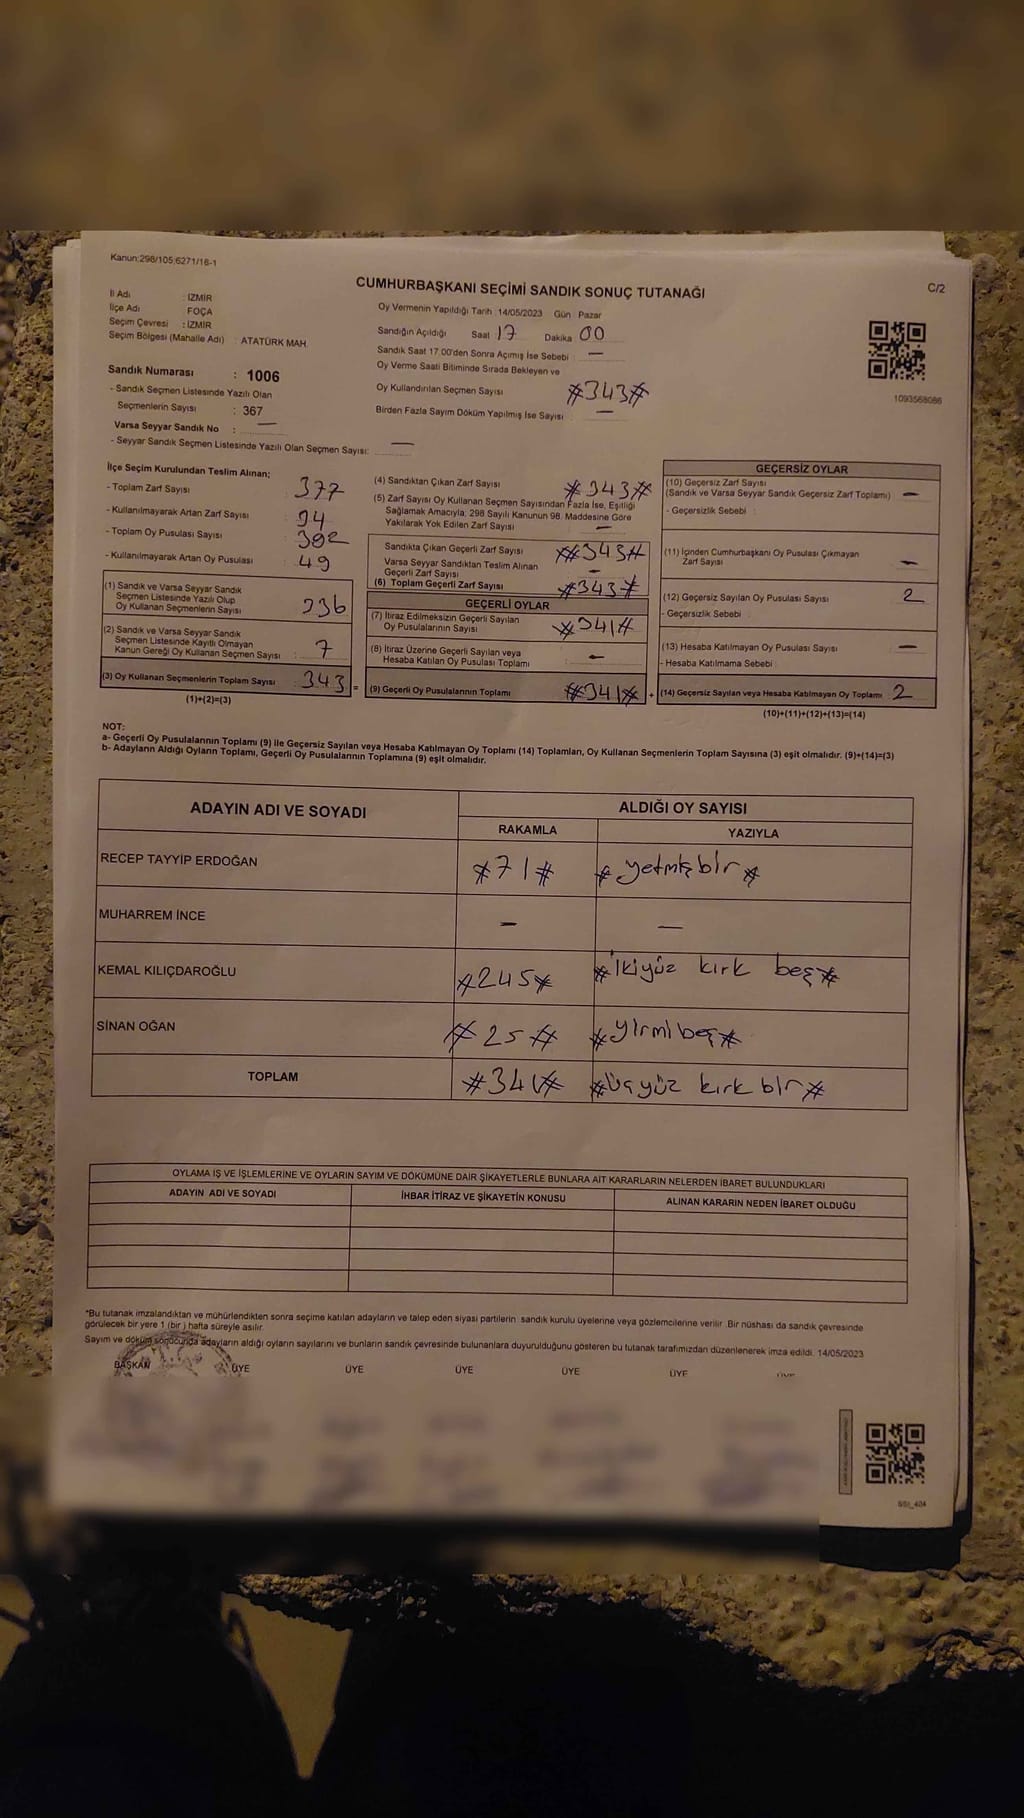 Kanun:298/105;6271/16-1
C/2
CUMHURBAŞKANI SEÇİMİ SANDIK SONUÇ TUTANAĞI
İl Adı : İZMİR
İlçe Adı FOÇA
Seçim Çevresi : İZMİR
Seçim Bölgesi (Mahalle Adı) : ATATÜRK MAH.
Sandık Numarası : 1006
- Sandık Seçmen Listesinde Yazılı Olan
Seçmenlerin Sayısı : 367
Varsa Seyyar Sandık No : —
- Seyyar Sandık Seçmen Listesinde Yazılı Olan Seçmen Sayısı: —
Oy Vermenin Yapıldığı Tarih 14/05/2023 Gün Pazar
Sandığın Açıldığı Saat 17 Dakika 00
Sandık Saat 17.00'den Sonra Açımış İse Sebebi : —
Oy Verme Saati Bitiminde Sırada Bekleyen ve
Oy Kullandırılan Seçmen Sayısı #343#
Birden Fazla Sayım Döküm Yapılmış İse Sayısı —
1093568086
İlçe Seçim Kurulundan Teslim Alınan;
- Toplam Zarf Sayısı : 377
- Kullanılmayarak Artan Zarf Sayısı : 34
- Toplam Oy Pusulası Sayısı :
- Kullanılmayarak Artan Oy Pusulası : 49
(1) Sandık ve Varsa Seyyar Sandık
Seçmen Listesinde Yazılı Olup
Oy Kullanan Seçmenlerin Sayısı : 336
(2) Sandık ve Varsa Seyyar Sandık
Seçmen Listesinde Kayıtlı Olmayan
Kanun Gereği Oy Kullanan Seçmen Sayısı : 7
(3) Oy Kullanan Seçmenlerin Toplam Sayısı : 343 =
(1)+(2)=(3)
(4) Sandıktan Çıkan Zarf Sayısı #343#
(5) Zarf Sayısı Oy Kullanan Seçmen Sayısından Fazla İse, Eşitliği
Sağlamak Amacıyla; 298 Sayılı Kanunun 98. Maddesine Göre
Yakılarak Yok Edilen Zarf Sayısı : —
Sandıkta Çıkan Geçerli Zarf Sayısı ##343#
Varsa Seyyar Sandıktan Teslim Alınan
Geçerli Zarf Sayısı : —
(6) Toplam Geçerli Zarf Sayısı #343#
GEÇERLİ OYLAR
(7) İtiraz Edilmeksizin Geçerli Sayılan
Oy Pusulalarının Sayısı #341#
(8) İtiraz Üzerine Geçerli Sayılan veya
Hesaba Katılan Oy Pusulası Toplamı : —
(9) Geçerli Oy Pusulalarının Toplamı ##341# +
GEÇERSİZ OYLAR
(10) Geçersiz Zarf Sayısı
(Sandık ve Varsa Seyyar Sandık Geçersiz Zarf Toplamı) : —
- Geçersizlik Sebebi :
(11) İçinden Cumhurbaşkanı Oy Pusulası Çıkmayan
Zarf Sayısı : —
(12) Geçersiz Sayılan Oy Pusulası Sayısı : 2
- Geçersizlik Sebebi :
(13) Hesaba Katılmayan Oy Pusulası Sayısı : —
- Hesaba Katılmama Sebebi :
(14) Geçersiz Sayılan veya Hesaba Katılmayan Oy Toplamı : 2
(10)+(11)+(12)+(13)=(14)
NOT:
a- Geçerli Oy Pusulalarının Toplamı (9) ile Geçersiz Sayılan veya Hesaba Katılmayan Oy Toplamı (14) Toplamları, Oy Kullanan Seçmenlerin Toplam Sayısına (3) eşit olmalıdır. (9)+(14)=(3)
b- Adayların Aldığı Oyların Toplamı, Geçerli Oy Pusulalarının Toplamına (9) eşit olmalıdır.
ADAYIN ADI VE SOYADI
ALDIĞI OY SAYISI
RAKAMLA YAZIYLA
RECEP TAYYİP ERDOĞAN #71# #yetmişbir#
MUHARREM İNCE — —
KEMAL KILIÇDAROĞLU #245# #ikiyüz kırk beş#
SİNAN OĞAN #25# #yirmibeş#
TOPLAM #341# #üçyüz kırk bir#
OYLAMA İŞ VE İŞLEMLERİNE VE OYLARIN SAYIM VE DÖKÜMÜNE DAİR ŞİKAYETLERLE BUNLARA AİT KARARLARIN NELERDEN İBARET BULUNDUKLARI
ADAYIN ADI VE SOYADI İHBAR İTİRAZ VE ŞİKAYETİN KONUSU ALINAN KARARIN NEDEN İBARET OLDUĞU
*Bu tutanak imzalandıktan ve mühürlendikten sonra seçime katılan adayların ve talep eden siyasi partilerin sandık kurulu üyelerine veya gözlemcilerine verilir. Bir nüshası da sandık çevresinde
görülecek bir yere 1 (bir) hafta süreyle asılır.
Sayım ve döküm sonucunda adayların aldığı oyların sayılarını ve bunların sandık çevresinde bulunanlara duyurulduğunu gösteren bu tutanak tarafımızdan düzenlenerek imza edildi. 14/05/2023
BAŞKAN ÜYE ÜYE ÜYE ÜYE ÜYE